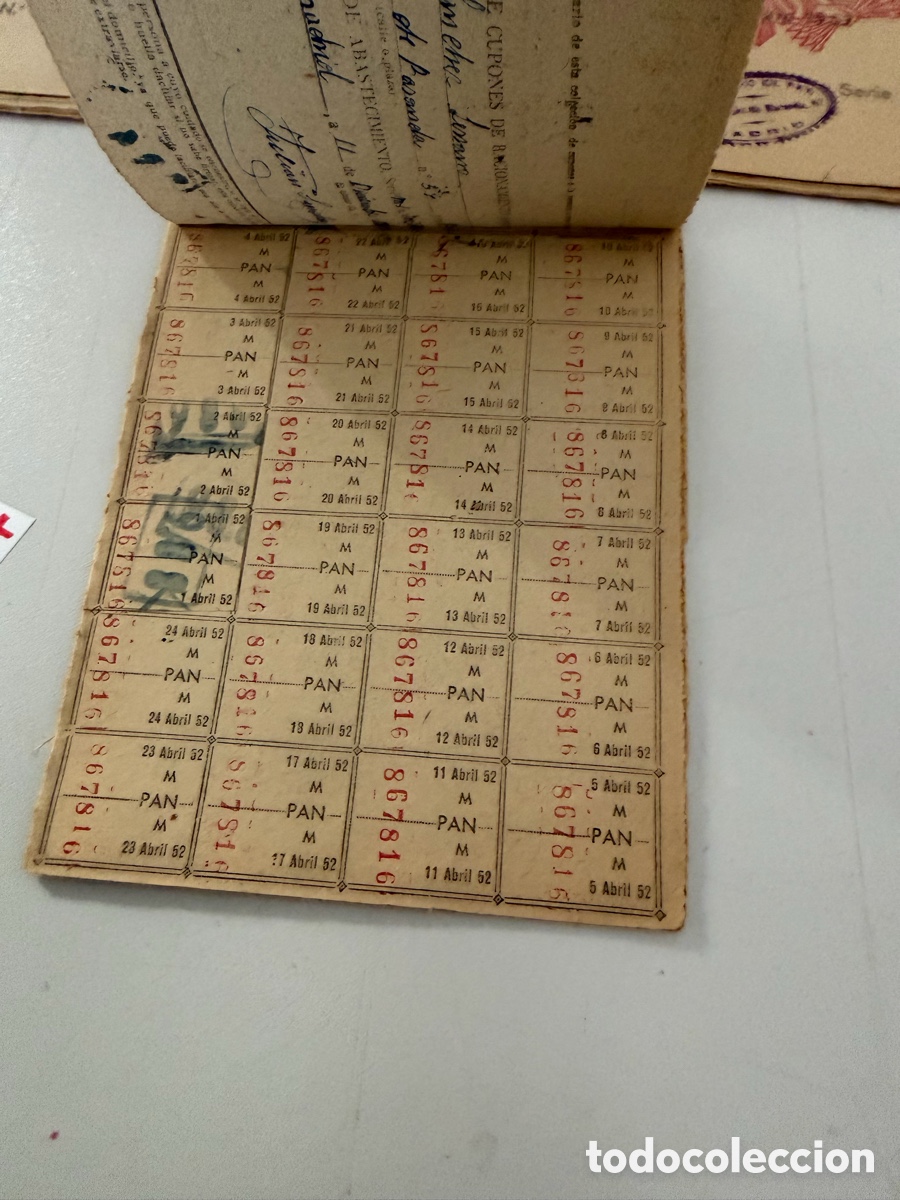 Serie
persona a cuyo
huella dactilar si no sabe
el domicilio, ya que puede
extraviarse.
E CUPONES DE RACIONAMIENTO
DE ABASTECIMIENTO.
(calle o plaza)
Madrid, a 11 de
Julián
ario de esta colección de
4 Abril 52
M
PAN
M
4 Abril 52
867816
22 Abril 52
M
PAN
M
22 Abril 52
867816
M
PAN
M
16 Abril 52
67816
10 Abril 52
M
PAN
M
10 Abril 52
867816
3 Abril 52
M
PAN
M
3 Abril 52
867816
21 Abril 52
M
PAN
M
21 Abril 52
867816
15 Abril 52
M
PAN
M
15 Abril 52
867816
9 Abril 52
M
PAN
M
9 Abril 52
867816
2 Abril 52
M
PAN
M
2 Abril 52
867816
20 Abril 52
M
PAN
M
20 Abril 52
867816
14 Abril 52
M
PAN
M
14 Abril 52
867816
8 Abril 52
M
PAN
M
8 Abril 52
867816
1 Abril 52
M
PAN
M
1 Abril 52
867816
19 Abril 52
M
PAN
M
19 Abril 52
867816
13 Abril 52
M
PAN
M
13 Abril 52
867816
7 Abril 52
M
PAN
M
7 Abril 52
867816
24 Abril 52
M
PAN
M
24 Abril 52
867816
18 Abril 52
M
PAN
M
18 Abril 52
867816
12 Abril 52
M
PAN
M
12 Abril 52
867816
6 Abril 52
M
PAN
M
6 Abril 52
867816
23 Abril 52
M
PAN
M
23 Abril 52
867816
17 Abril 52
M
PAN
M
17 Abril 52
867816
11 Abril 52
M
PAN
M
11 Abril 52
867816
5 Abril 52
M
PAN
M
5 Abril 52
867816
todocoleccion